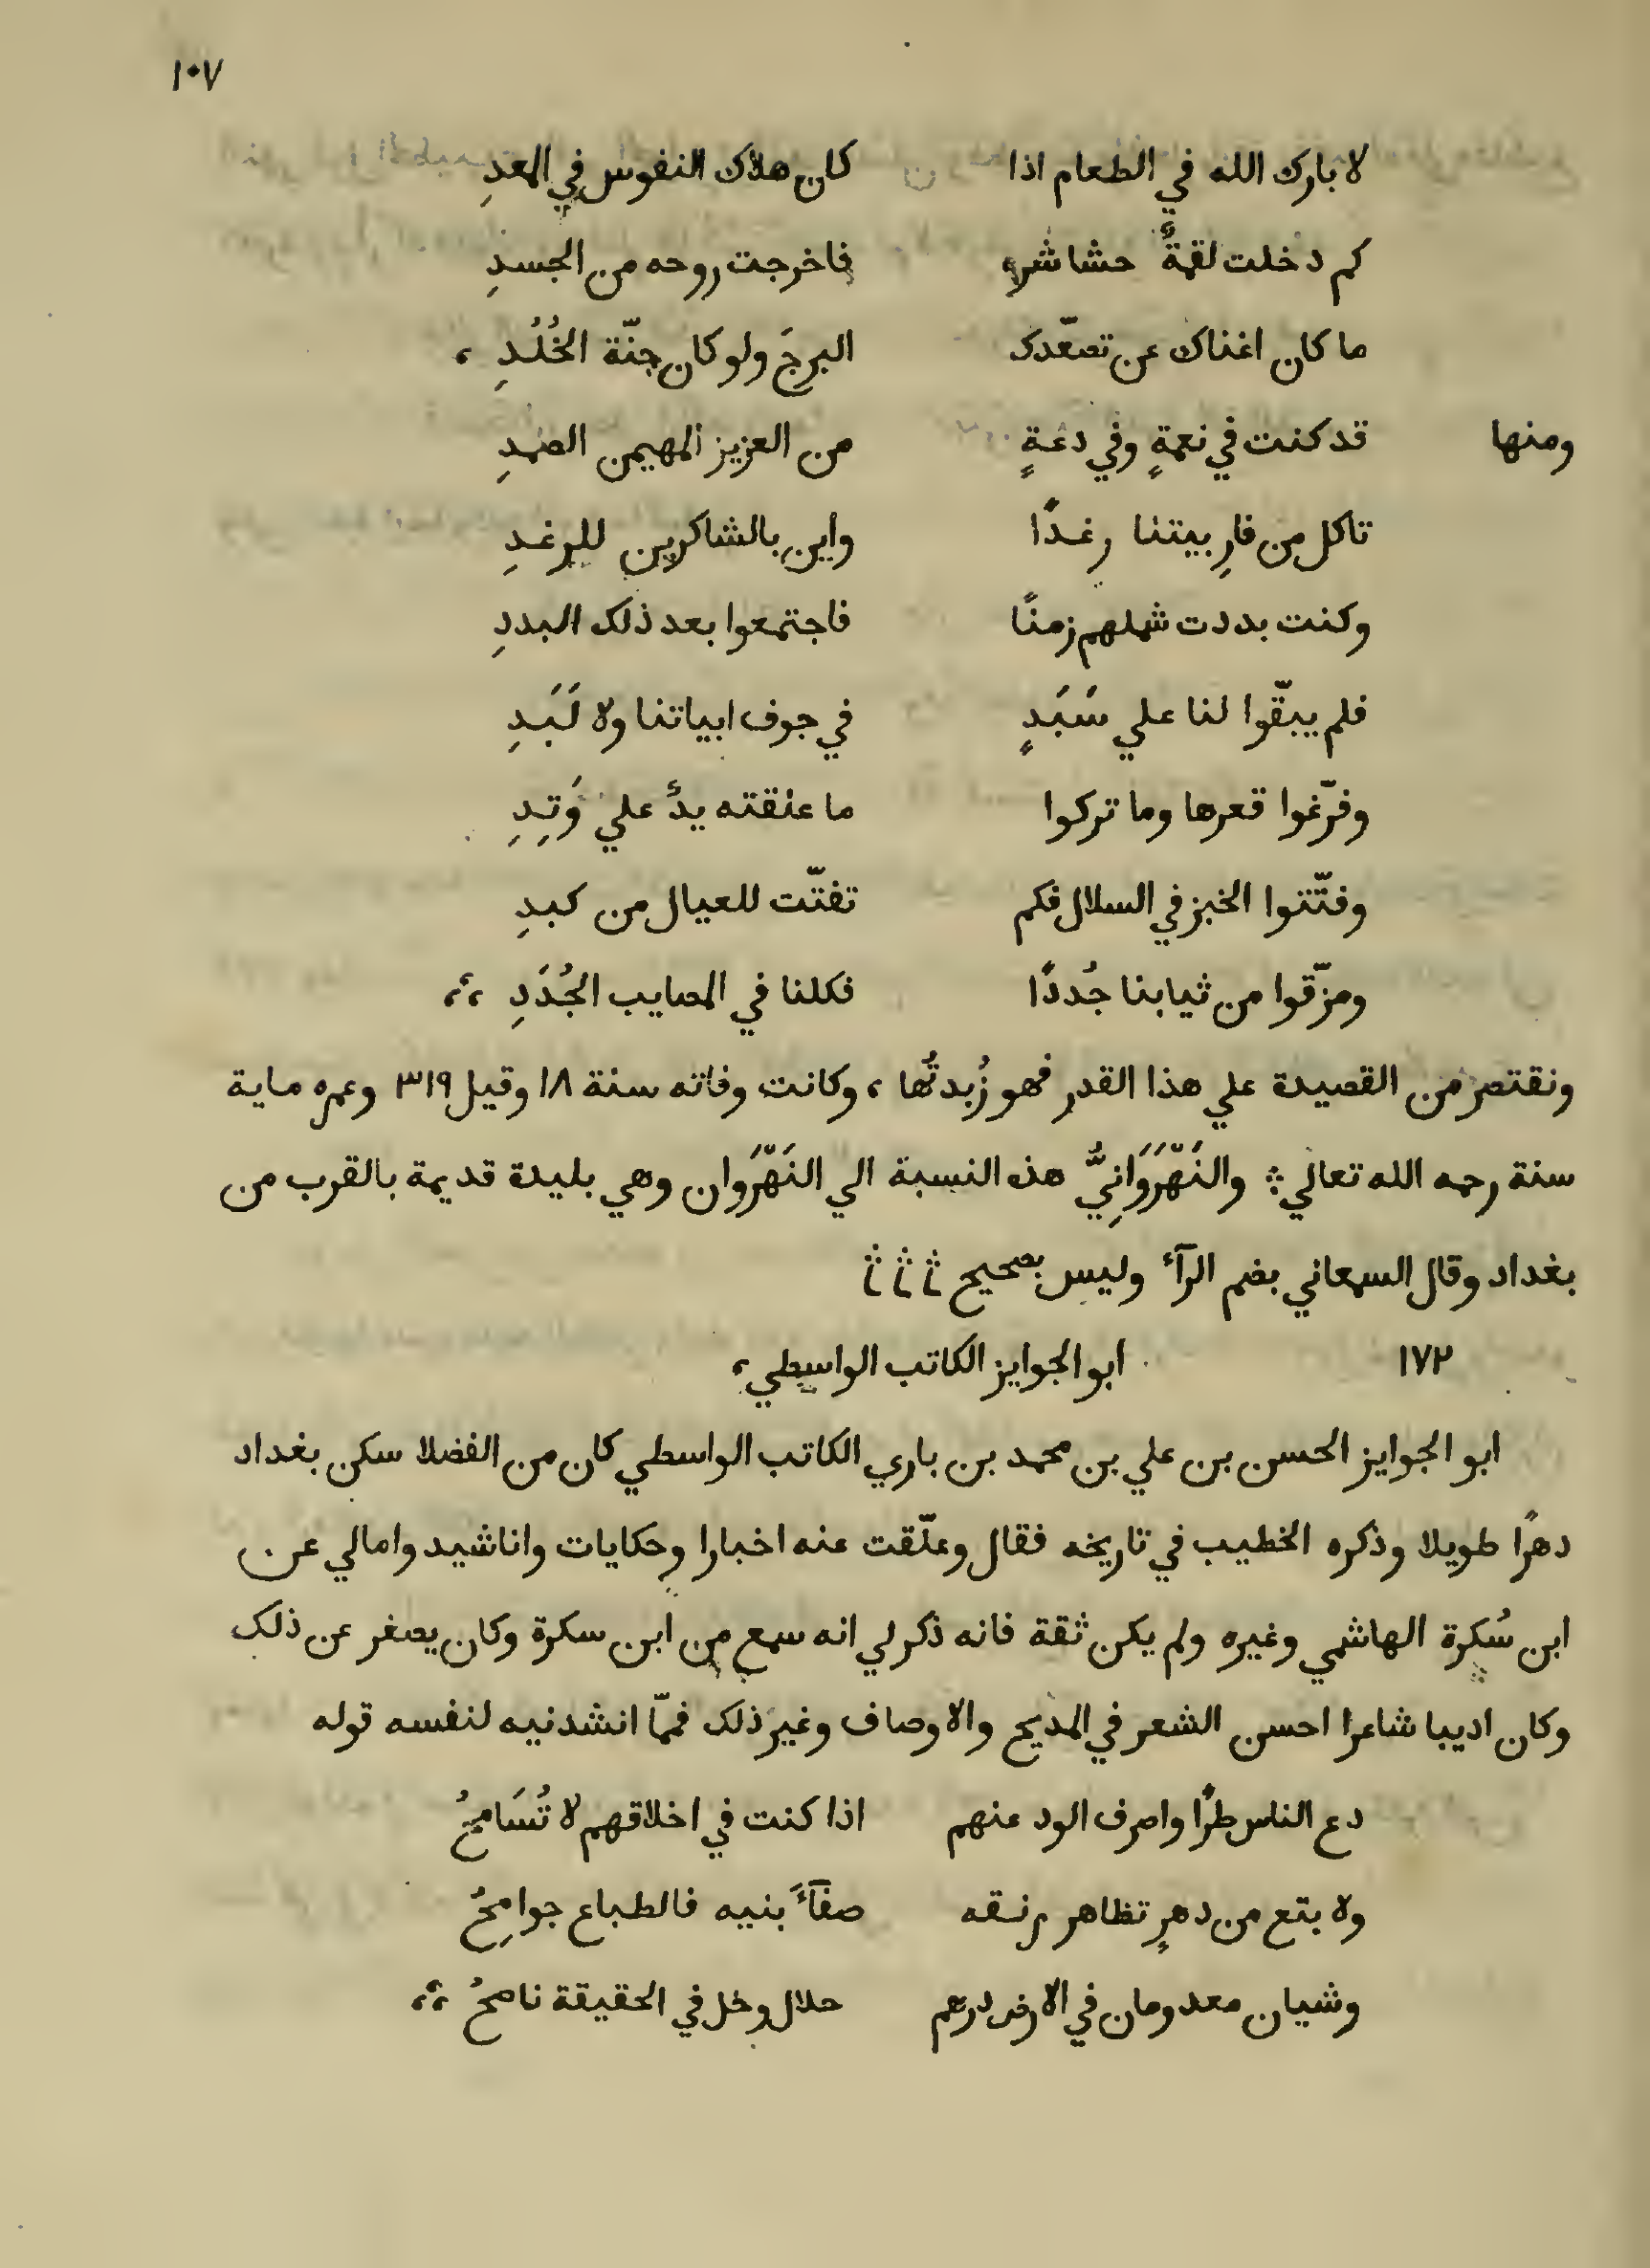 ١٠٧
لا بارك الله في الطعام اذا كان هلاك النفوس في المعدِ
كم دخلت لقمةٌ حشا شرهٍ فاخرجت روحه من الجسدِ
ما كان اغناك عن تصعّدك البرجَ ولو كان جنّة الخُلُدِ ،
ومنها قد كنت في نعمةٍ وفي دعةٍ من العزيز المهيمن الصمدِ
تاكل من فارِ بيتنا رغدًا واين بالشاكرين للرغدِ
وكنت بددت شملهم زمنًا فاجتمعوا بعد ذلك البددِ
فلم يبقّوا لنا علي سَبَدٍ في جوف ابياتنا ولا لَبَدِ
وفرّغوا قعرها وما تركوا ما علقته يدٌ علي وَتِدِ
وفتّتوا الخبز في السلال فكم تفتّت للعيال من كبدِ
ومزّقوا من ثيابنا جُددًا فكلنا في المصايب الجُدَدِ ،،
ونقتصر من القصيدة علي هذا القدر فهو زُبدتُها ، وكانت وفاته سنة ١٨ وقيل ٣١٩ وعمره ماية
سنة رحمه الله تعالي ؞ والنَهْرَوَانِيُّ هذه النسبة الي النَهْرَوان وهي بليدة قديمة بالقرب من
بغداد وقال السمعاني بضم الرآء وليس بصحيح
١٧٢ ابو الجوايز الكاتب الواسطي ،
ابو الجوايز الحسن بن علي بن محمد بن باري الكاتب الواسطي كان من الفضلا سكن بغداد
دهرًا طويلا وذكره الخطيب في تاريخه فقال وعلّقت عنه اخبارا وحكايات واناشيد وامالي عن
ابن سُكرة الهاشمي وغيره ولم يكن ثقة فانه ذكر لي انه سمع من ابن سكرة وكان يصغر عن ذلك
وكان اديبا شاعرا احسن الشعر في المديح والاوصاف وغير ذلك فممّا انشدنيه لنفسه قوله
دع الناس طرًا واصرف الود عنهم اذا كنت في اخلاقهم لا تُسَامحُ
ولا بتع من دهرٍ تظاهر رنقه صفآءَ بنيه فالطباع جوامِحُ
وشيان معدومان في الارض درهم حلال وخل في الحقيقة ناصحُ ،،